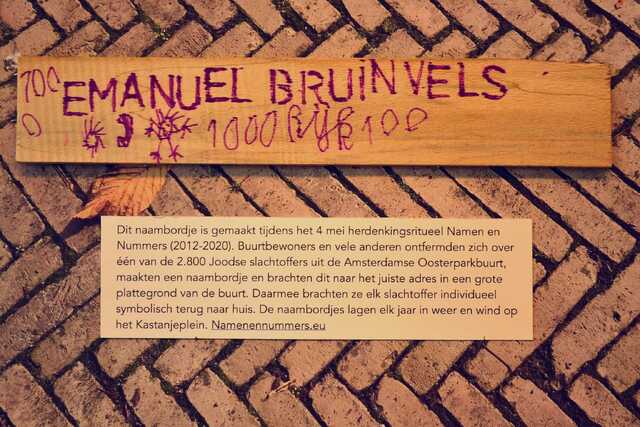 100
EMANUEL BRUINVELS
0
1000 Rijk 100
Dit naambordje is gemaakt tijdens het 4 mei herdenkingsritueel Namen en
Nummers (2012-2020). Buurtbewoners en vele anderen ontfermden zich over
één van de 2.800 Joodse slachtoffers uit de Amsterdamse Oosterparkbuurt,
maakten een naambordje en brachten dit naar het juiste adres in een grote
plattegrond van de buurt. Daarmee brachten ze elk slachtoffer individueel
symbolisch terug naar huis. De naambordjes lagen elk jaar in weer en wind op
het Kastanjeplein. Namenennummers.eu